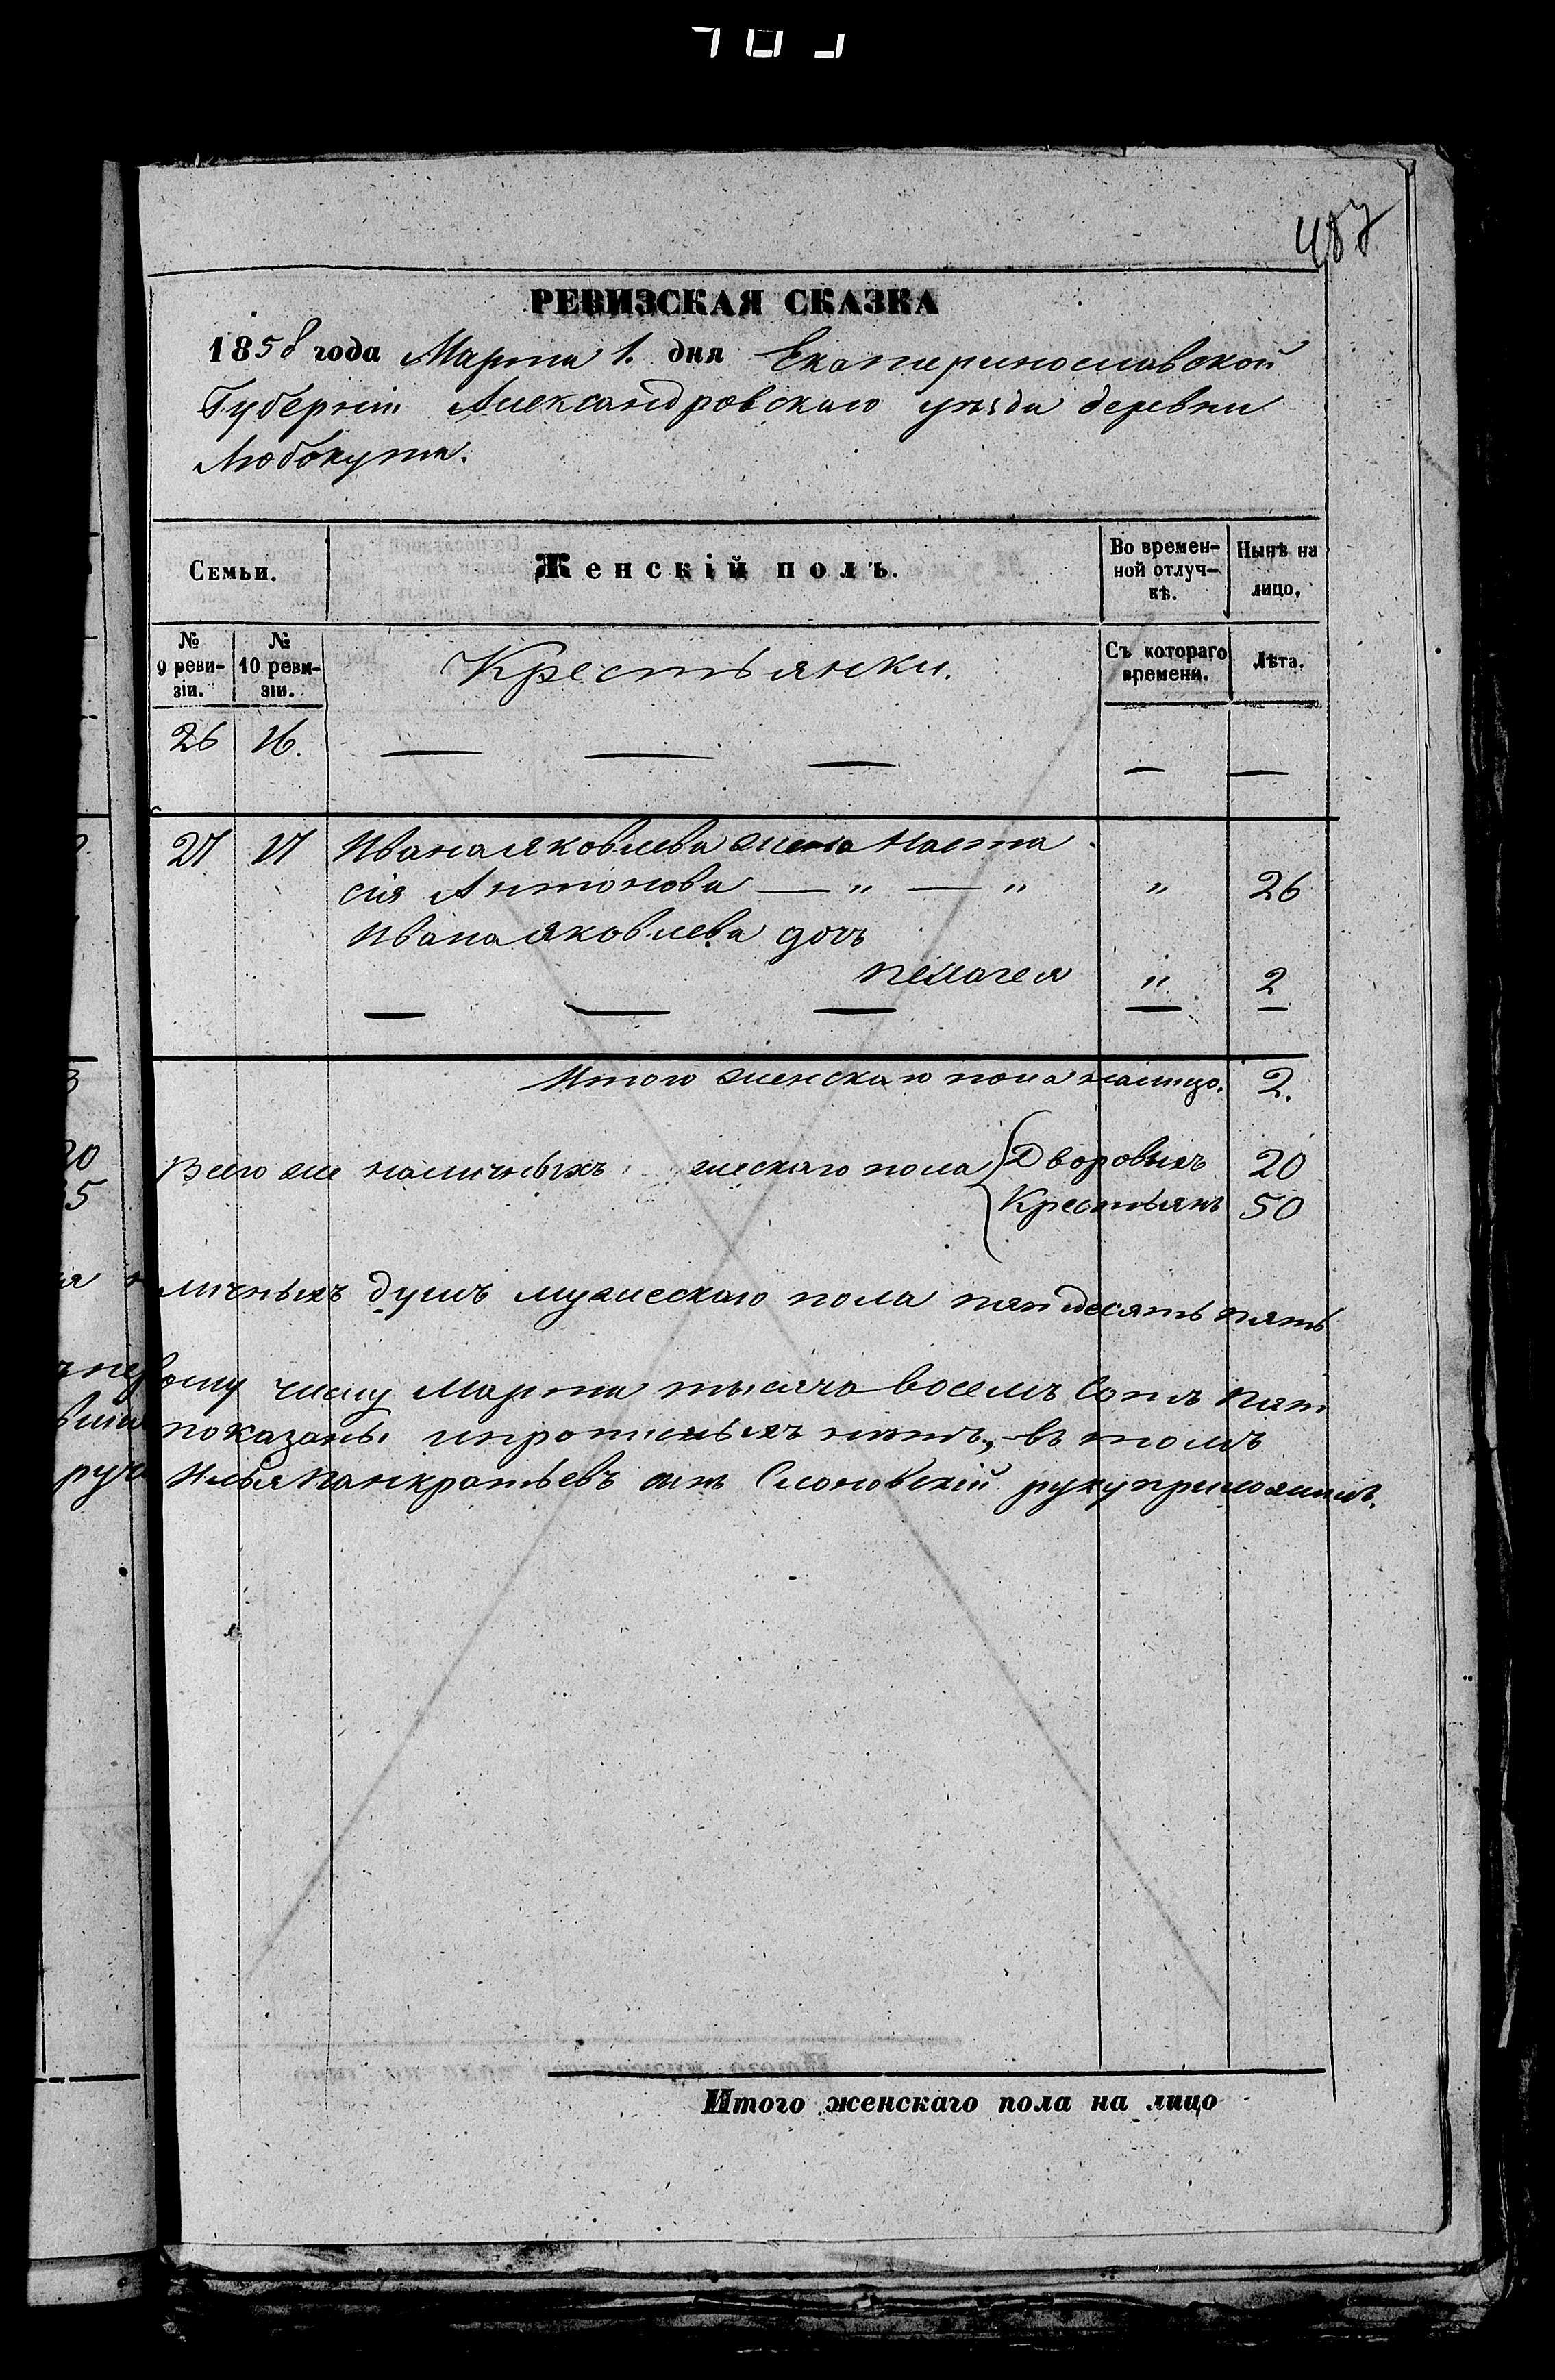 487
РЕВИЗСКАЯ СКАЗКА
1858 года Марта 1. дня Екатеринославской
Губерніи Александровскаго уѣзда деревни
Любокута.
Семьи.
Женскій полъ.
Во времен-
ной отлуч-
кѣ.
Нынѣ на
лицо.
№
9 реви-
зіи.
№
10 реви-
зіи.
Крестьянки.
Съ котораго
времени.
Лѣта.
26 26. — — — — —
27 27 Ивана Яковлева жена Наста
сія Антонова — „ — „ „ 26
Ивана Яковлева дочь
Пелагея „ 2
— — — — —
Итого женскаго пола налицо. 2.
Всего же наличныхъ женскаго пола Дворовыхъ 20
Крестьянъ 50
личныхъ душъ мужескаго пола пятдесятъ пять
первому числу Марта тысяча восемь Сотъ Пят
показаны и прописныхъ нѣтъ, въ томъ
руч Илья Панкратьевъ сынъ Слоновскій руку приложилъ.
Итого женскаго пола на лицо